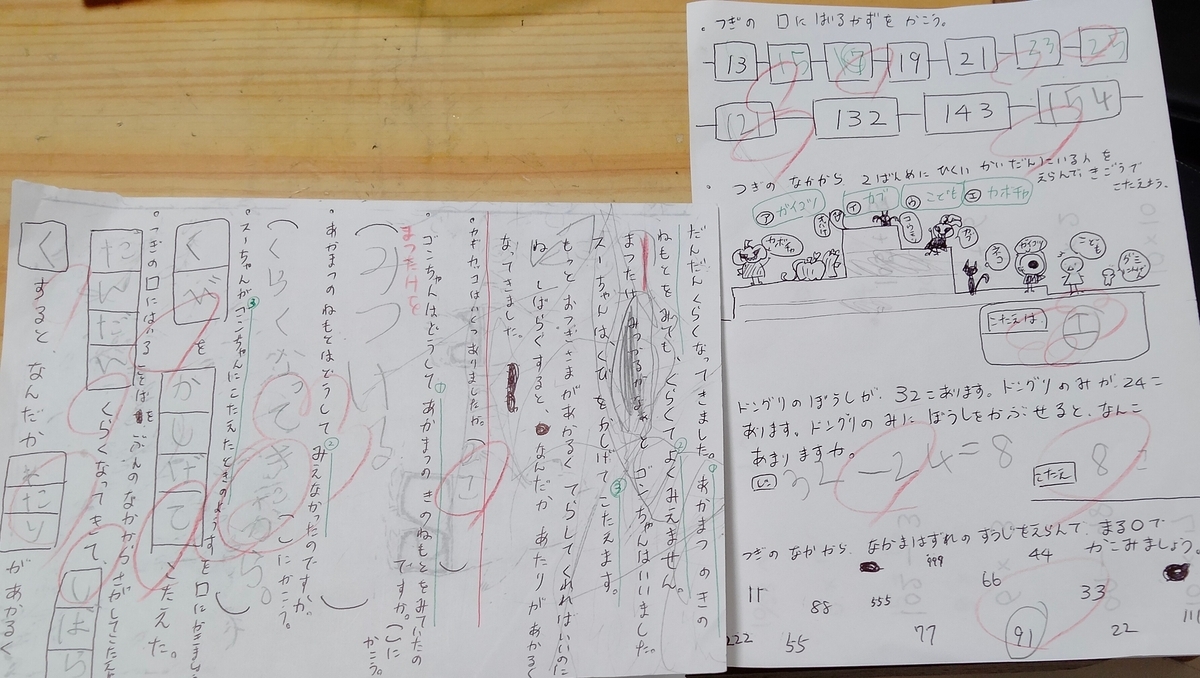 。つぎの 口に はいるかずを かこう。
13 15 17 19 21 33 23
121 132 143 154
。つぎの なかから 2ばんめに ひくい かいだんにいる人を
えらんで、きごうで
こたえよう。
㋐ガイコツ ㋑カブ ㋒こども ㋓カボチャ
カボチャ
ネコ
ガイコツ
こども
こたえは
ドングリのぼうしが、32こあります。ドングリのみが、24こ
あります。ドングリの みに ぼうしをかぶせると、なんこ
あまりますか。
32-24=8
こたえ 8こ
つぎの なかから、なかまはずれの すうじをえらんで、まるOで
かこみましょう。
999 44
11 66 33
88 555
111
222 55 77 91 22
だんだんくらくなってきました。①あかまつ のきの
ねもとをみても、くらくて②よく みえません。
まったけ みつかるかなあとゴンちゃんはいいました。
スーちゃんはくびをかしげて③こたえます。
もっと おつきさまがあかるく てらしてくれればいいのに
ね しばらくすると、なんだか あたりが あかるく
なってきました。
。カギカッコはいくつありましたか。
2こ
。ゴンちゃんはどうして①あかまつの きのねもとをみていたの
ですか。()に
かこう。
まつたけを
(みつける)
。あかまつのねもとはどうして②みえなかったのですか。
(くらくなってきたから。)にかこう。
。スーちゃんが③ゴンちゃんにこたえたときのようすを口にかきましょう
くびを かしげて こたえた。
。つぎの口にはいることばを ぶんのなかからさがしてこたえ
だんだん くらくなってきて、しばら
く すると、なんだか あたり があかるく